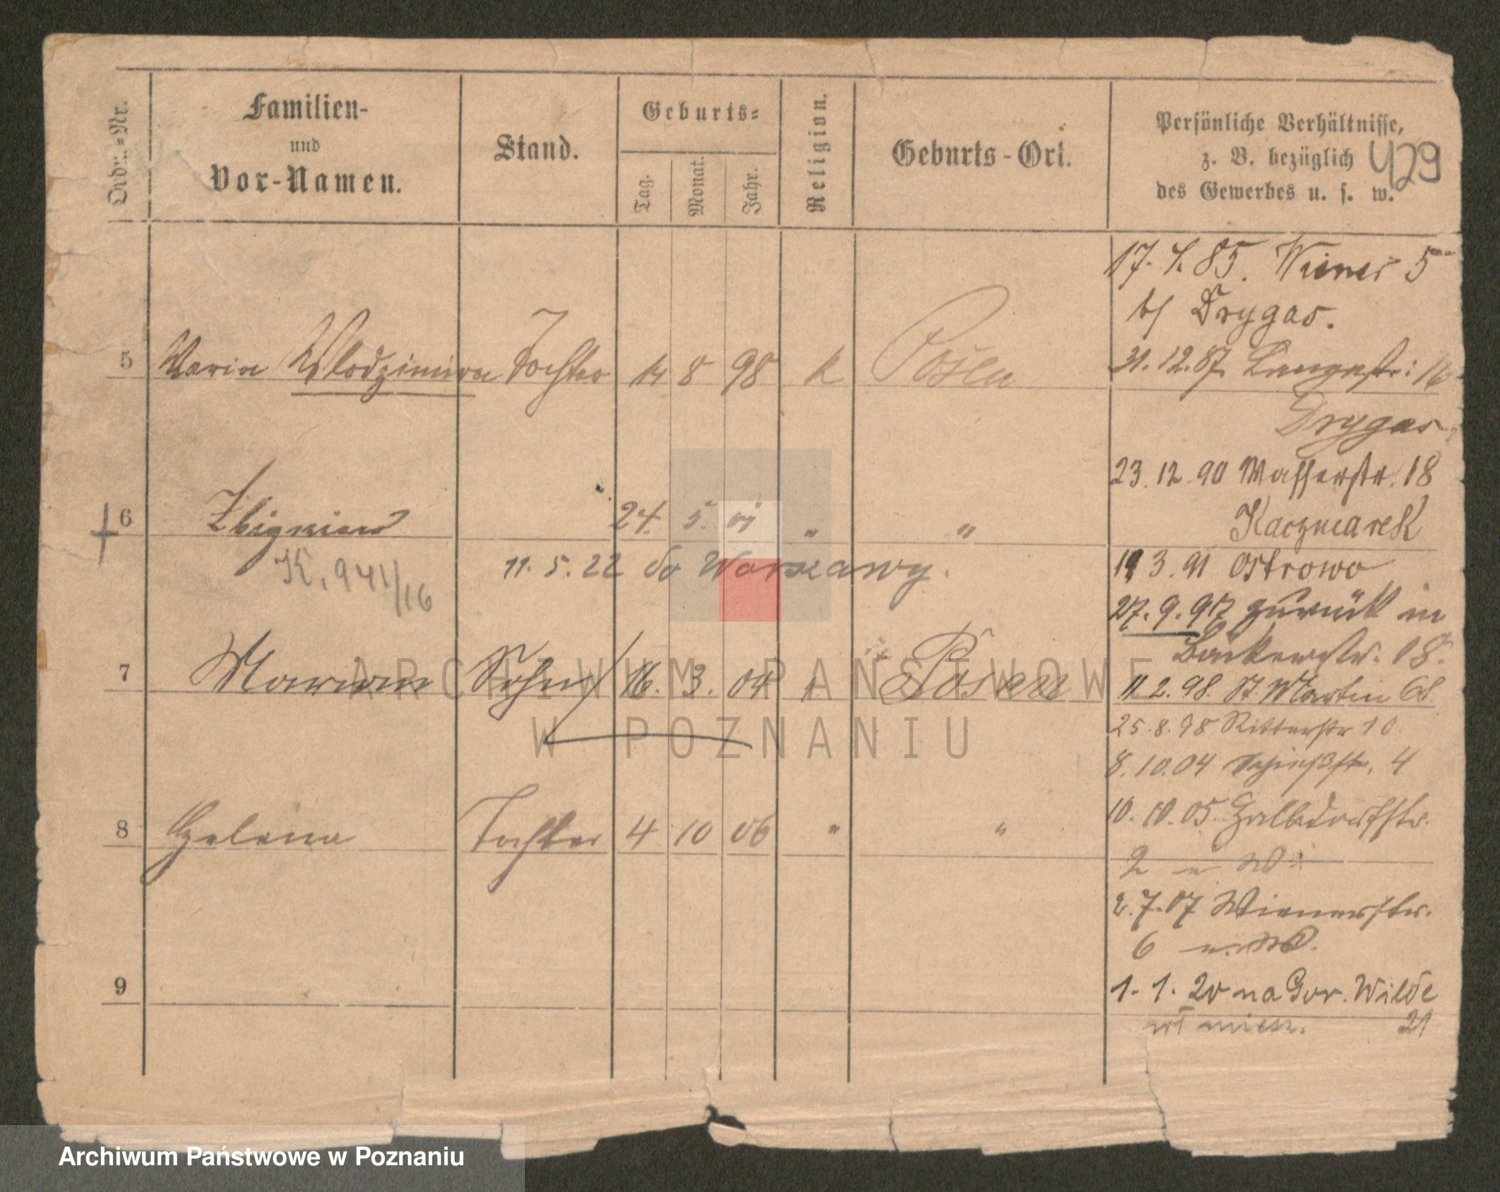 Ordn.-Nr.
Familien-
und
Vor-Namen.
Stand.
Geburts-
Tag.
Monat.
Jahr.
Religion.
Geburts-Ort.
Persönliche Verhältnisse,
z. B. bezüglich
des Gewerbes u. s. w.
429
17. 85. Wiener 5
b/ Drygas.
5 Maria Wlodzimira Tochter 14 8 98 k Posen
31.12.87 Langestr: 16
Drygas
23.12.90 Wasserstr. 18
6 Zbigniew 24. 5. 01 " "
Kaczmarek
K. 941/16
11. 5. 22 do Warszawy.
19 3. 91 Ostrowo
27. 9. 97 zurück in
Bäckerstr. 18.
7 Marian Sohn 16. 3. 04 k Posen
11.2.98. St Martin 68.
25.8.98 Ritterstr 10.
8.10.04 Schießstr. 4
8 Helena Tochter 4 10 06 " "
10.10.05. Halbdorfstr.
2
2.7.07 Wienerstr.
6
9
1. 1. 20 na Gór. Wilde
21
ARCHIWUM PAŃSTWOWE
W POZNANIU
Archiwum Państwowe w Poznaniu